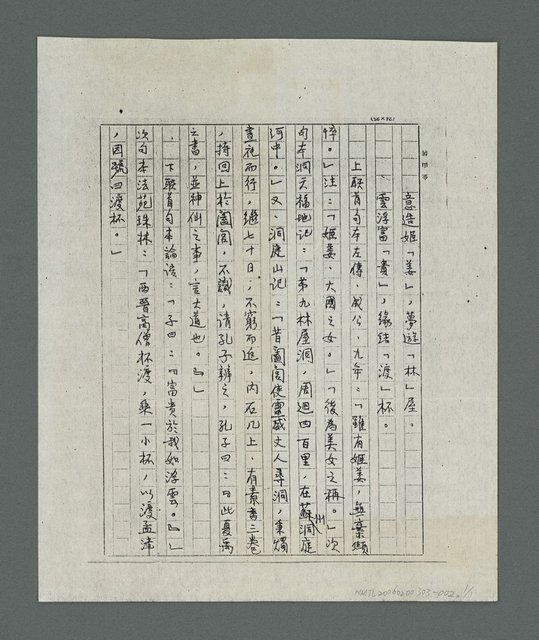 意造姬「姜」，夢遊「林」屋。
雲浮富「貴」，緣結「渡」杯。
上联首句本左傳、成公、九年：「雖有姬姜，無棄蕉
悴。」注：「姬姜、大國之女。」「後為美女之稱。」次
句本洞天福地記：「第九林屋洞，周迴四百里，在蘇州洞庭
河中。」又、洞庭山記：「昔闔閭使靈威丈人尋洞，秉燭
晝夜而行，繼七十日，不窮而返，內石几上，有素書三卷
，持回上於闔閭，不識，請孔子辨之，孔子曰：曰此夏禹
之書，並神仙之事，言大道也。』」
下联首句本論語：「子曰：『富貴於我如浮雲。』」
次句本法苑珠林：「西晉高僧杯渡，乘一小杯，以渡孟津
，因號曰渡杯。」
(25×12)
NMTL20060200303-002 1/1